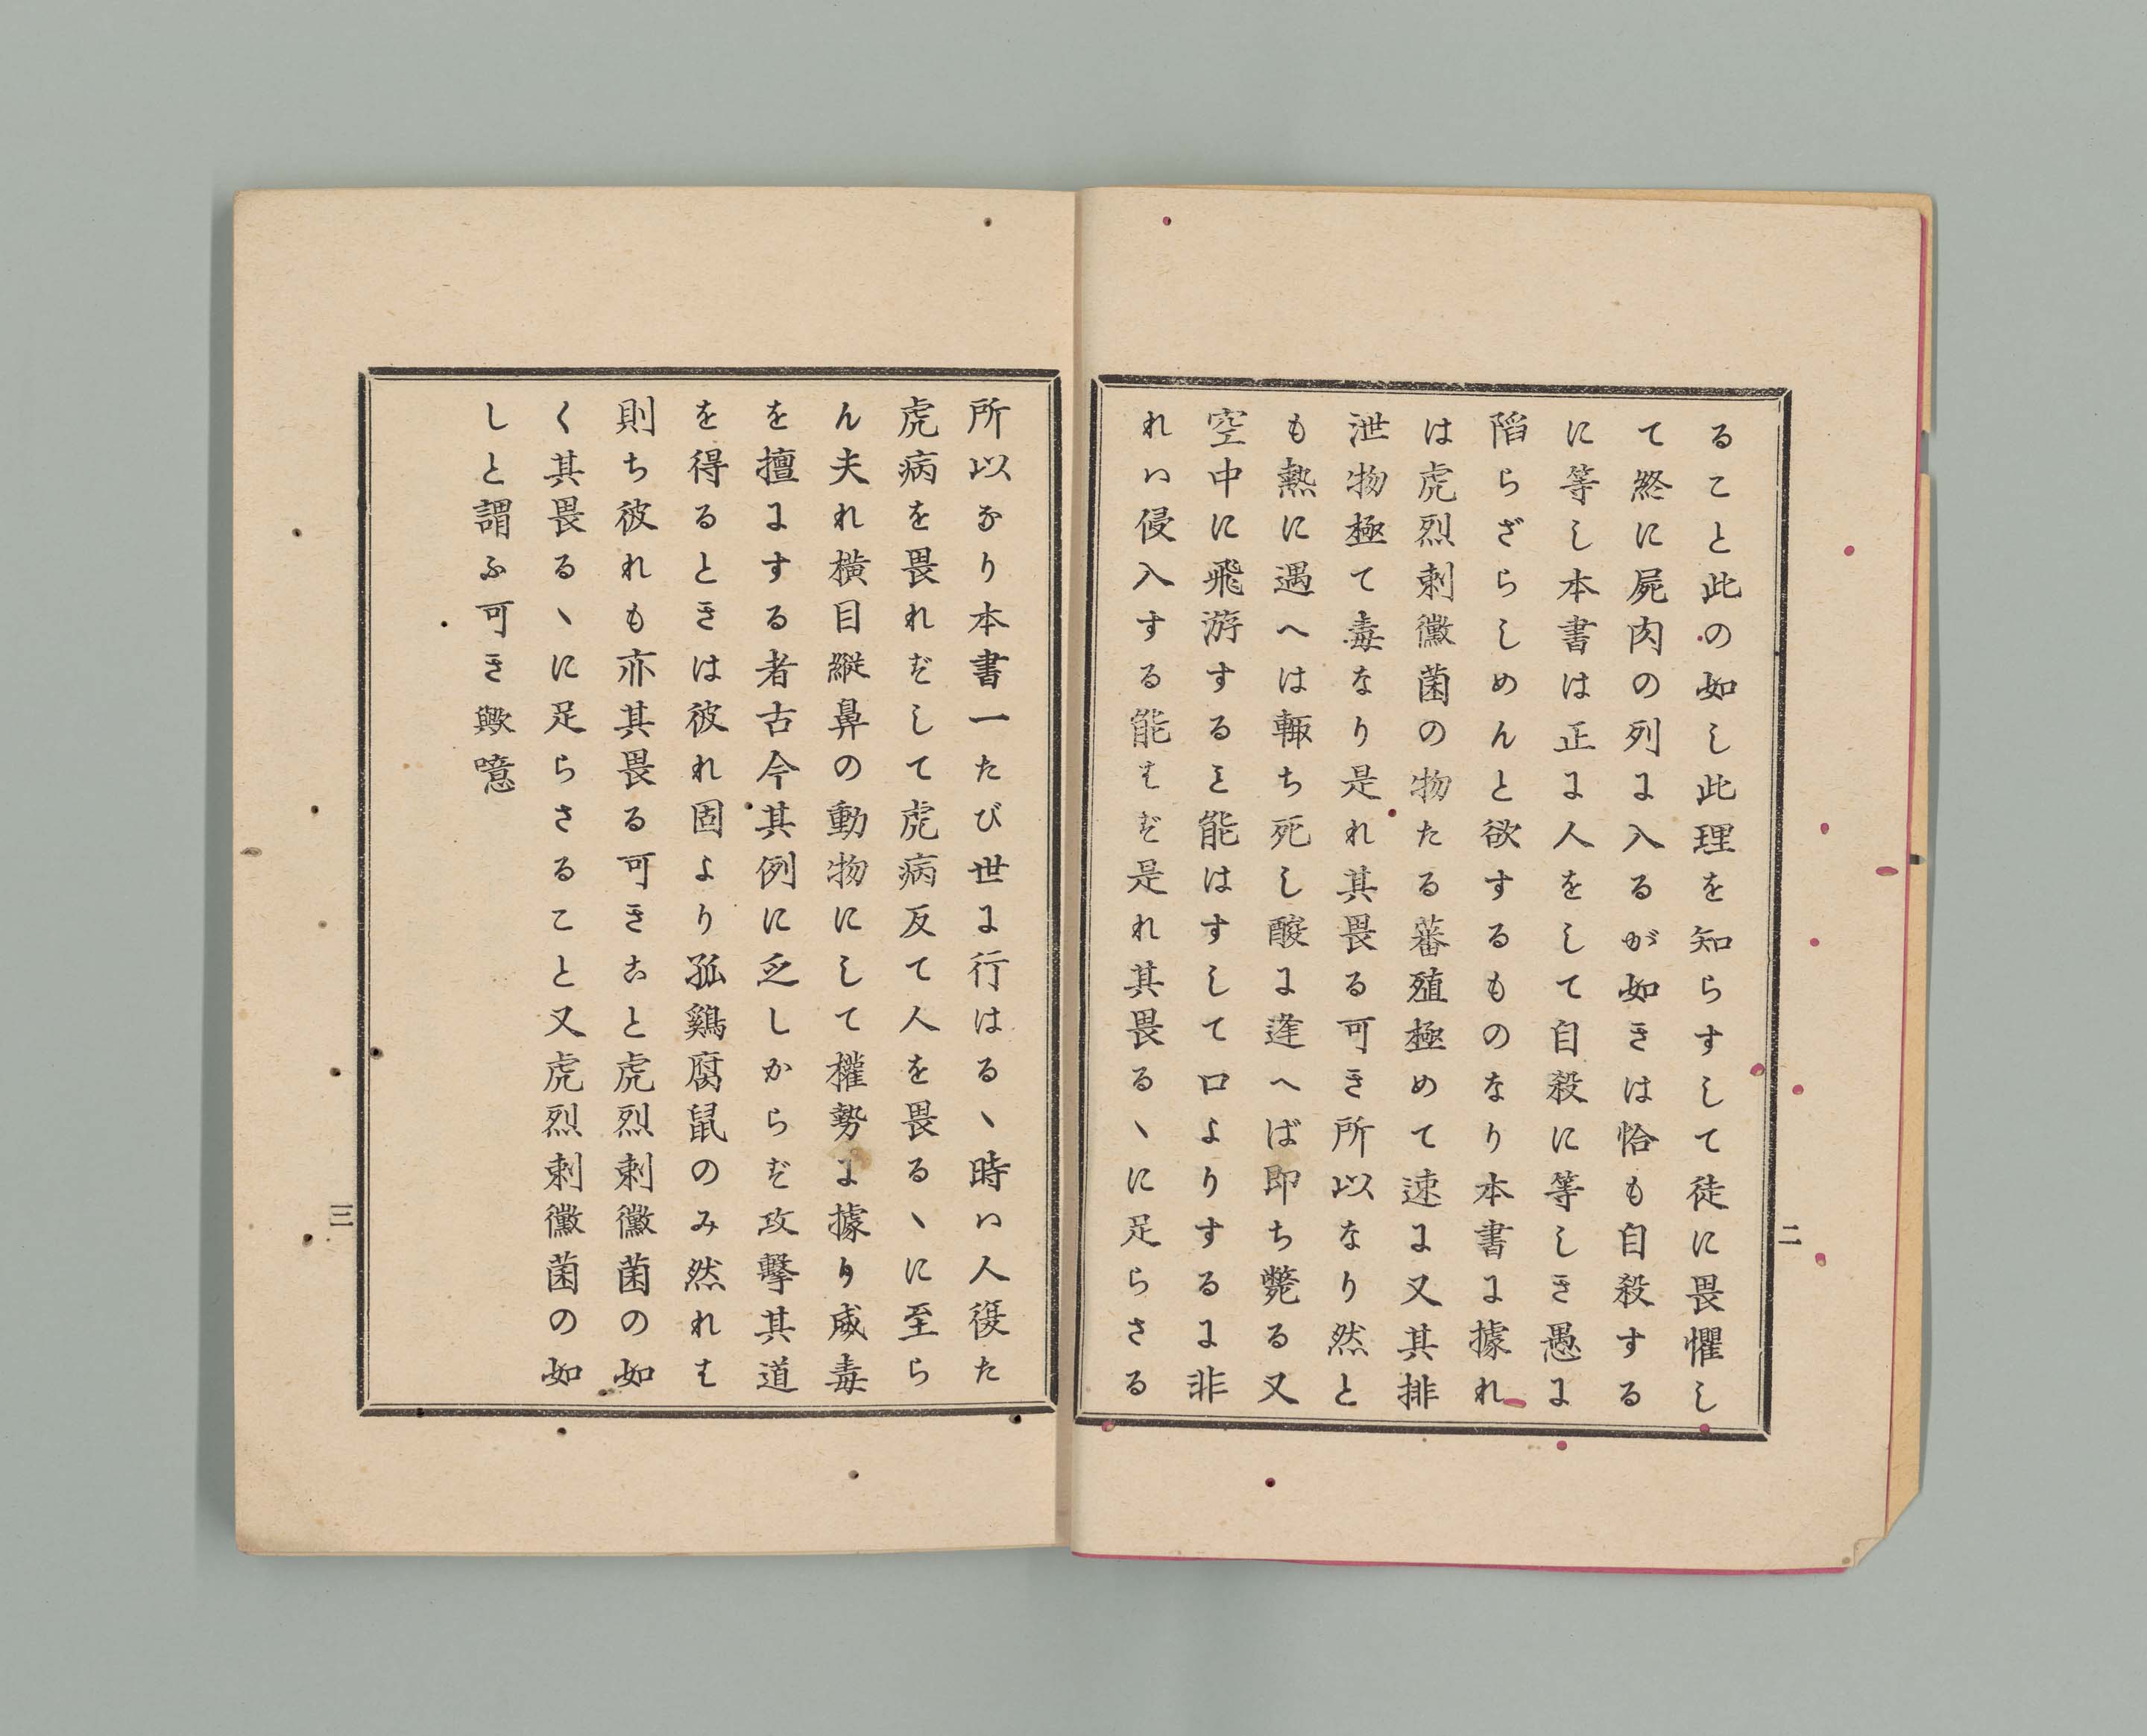 ること此の如し此理を知らすして徒に畏懼し
て終に屍肉の列に入るが如きは恰も自殺する
に等し本書は正に人をして自殺に等しき愚に
陷らざらしめんと欲するものなり本書に據れ
は虎烈刺黴菌の物たる蕃殖極めて速に又其排
泄物極て毒なり是れ其畏る可き所以なり然と
も熱に遇へは輙ち死し酸に逢へば即ち斃る又
空中に飛游するヿ能はすして口よりするに非
れハ侵入する能はず是れ其畏るゝに足らさる
二
所以なり本書一たび世に行はるゝ時ハ人復た
虎病を畏れずして虎病反て人を畏るゝに至ら
ん夫れ橫目縱鼻の動物にして權勢に據り威毒
を擅にする者古今其例に乏しからず攻擊其道
を得るときは彼れ固より孤鷄腐鼠のみ然れは
則ち彼れも亦其畏る可きこと虎烈刺黴菌の如
く其畏るゝに足らさること又虎烈刺黴菌の如
しと謂ふ可き歟噫
三